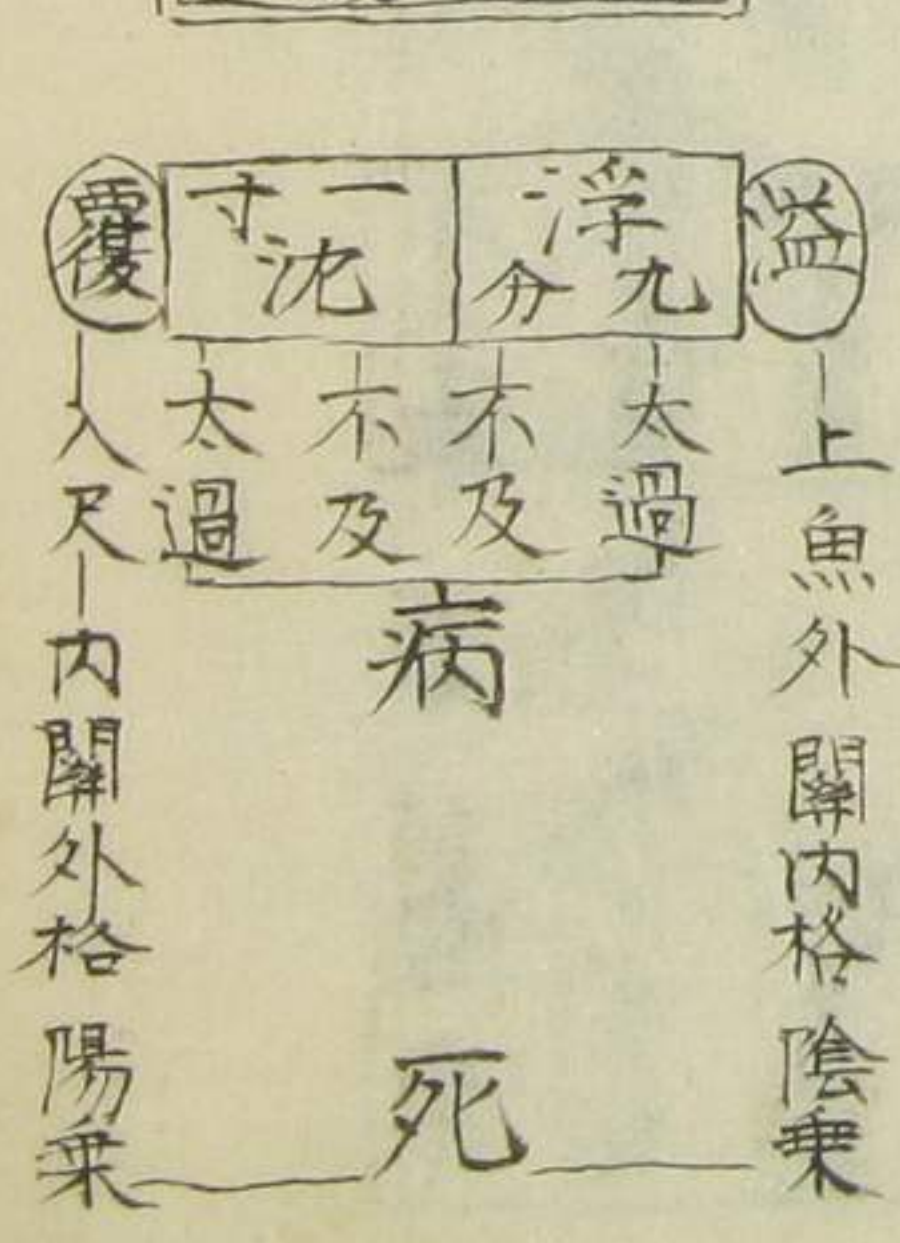 溢
浮
九分
一寸
沈
覆
上魚外關內格陰乗
太過
不及
不及
太過
入尺內關外格陽乗
病
死